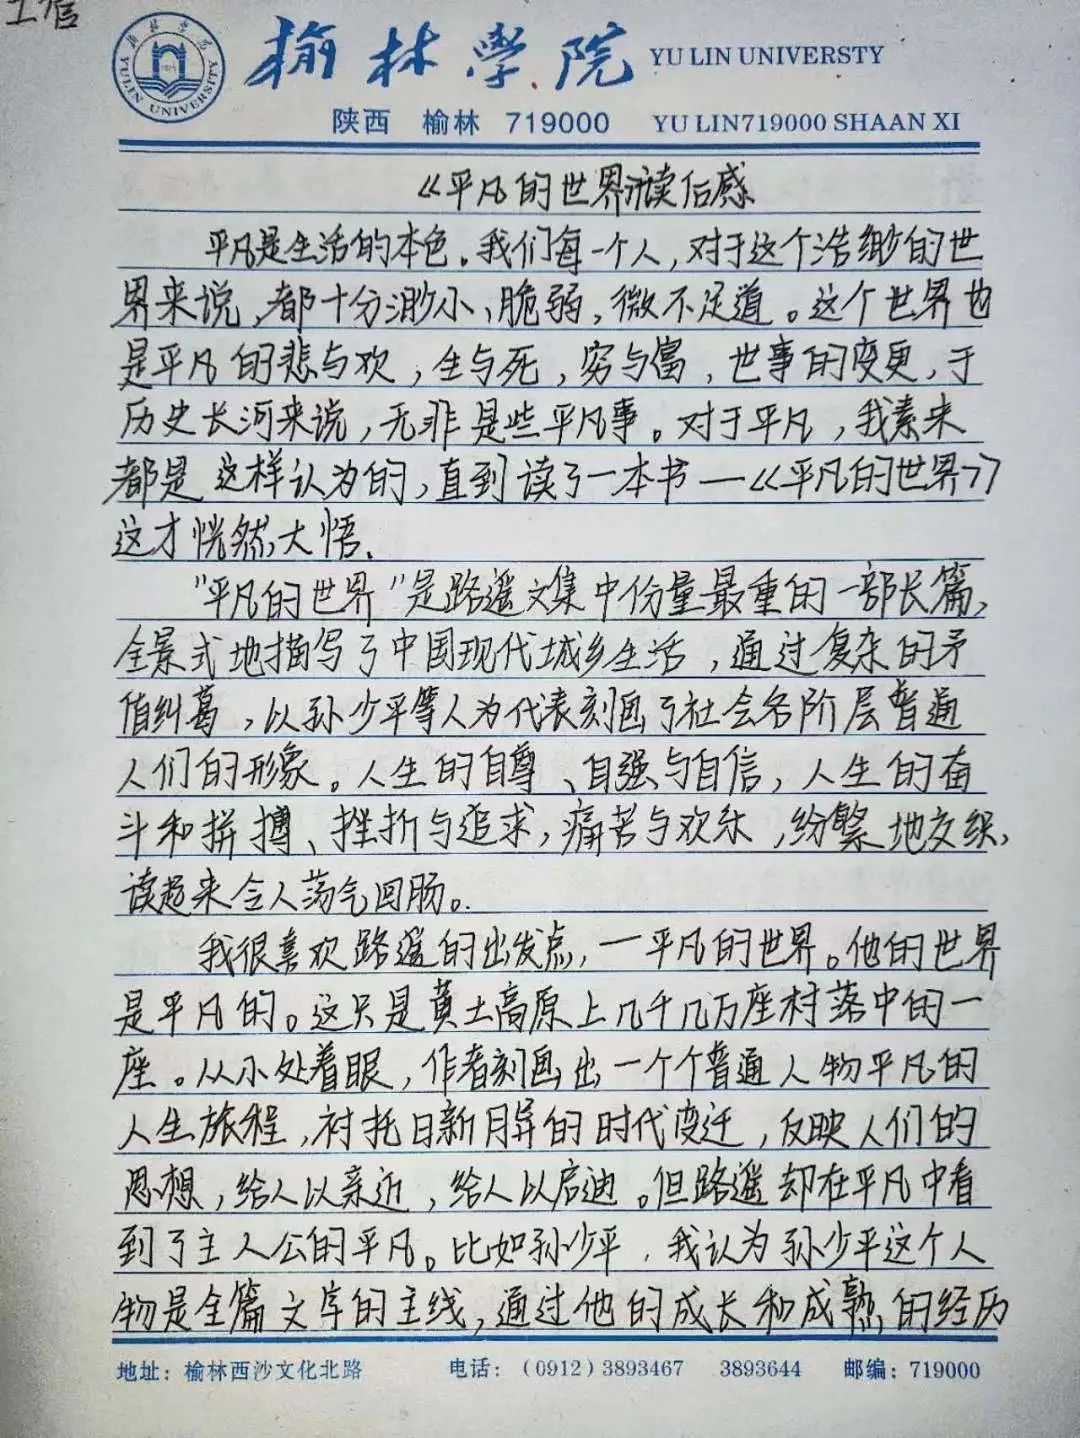 榆林学院 YU LIN UNIVERSTY
YULIN UNIVERSITY
陕西 榆林 719000 YU LIN719000 SHAAN XI
《平凡的世界》读后感
平凡是生活的本色。我们每一个人,对于这个浩缈的世
界来说,都十分渺小、脆弱,微不足道。这个世界也
是平凡的悲与欢,生与死,穷与富,世事的变更,于
历史长河来说,无非是些平凡事。对于平凡,我素来
都是这样认为的,直到读了一本书—《平凡的世界》
这才恍然大悟.
"平凡的世界"是路遥文集中份量最重的一部长篇,
全景式地描写了中国现代城乡生活,通过复杂的矛
值纠葛,以孙少平等人为代表刻画了社会各阶层普通
人们的形象。人生的自尊、自强与自信,人生的奋
斗和拼搏、挫折与追求,痛苦与欢乐,纷繁地交织,
读起来令人荡气回肠。
我很喜欢路遥的出发点,一平凡的世界。他的世界
是平凡的。这只是黄土高原上几千几万座村落中的一
座。从小处着眼,作者刻画出一个个普通人物平凡的
人生旅程,衬托日新月异的时代变迁,反映人们的
思想,给人以亲近,给人以启迪。但路遥却在平凡中看
到了主人公的平凡。比如孙少平,我认为孙少平这个人
物是全篇文字的主线,通过他的成长和成熟的经历
地址:榆林西沙文化北路 电话:(0912)3893467 3893644 邮编:719000